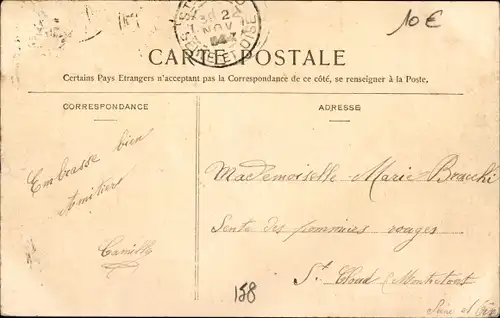 10€
2
NOV
SEINE ET OISE
CARTE POSTALE
Certains Pays Etrangers n'acceptant pas la Correspondance de ce côté, se renseigner à la Poste.
CORRESPONDANCE
ADRESSE
Embrasse bien
Amitiés
Camille
Mademoiselle Marie Bracchi
Sente des pommiers rouges
St Cloud (Montretout
Seine et
158